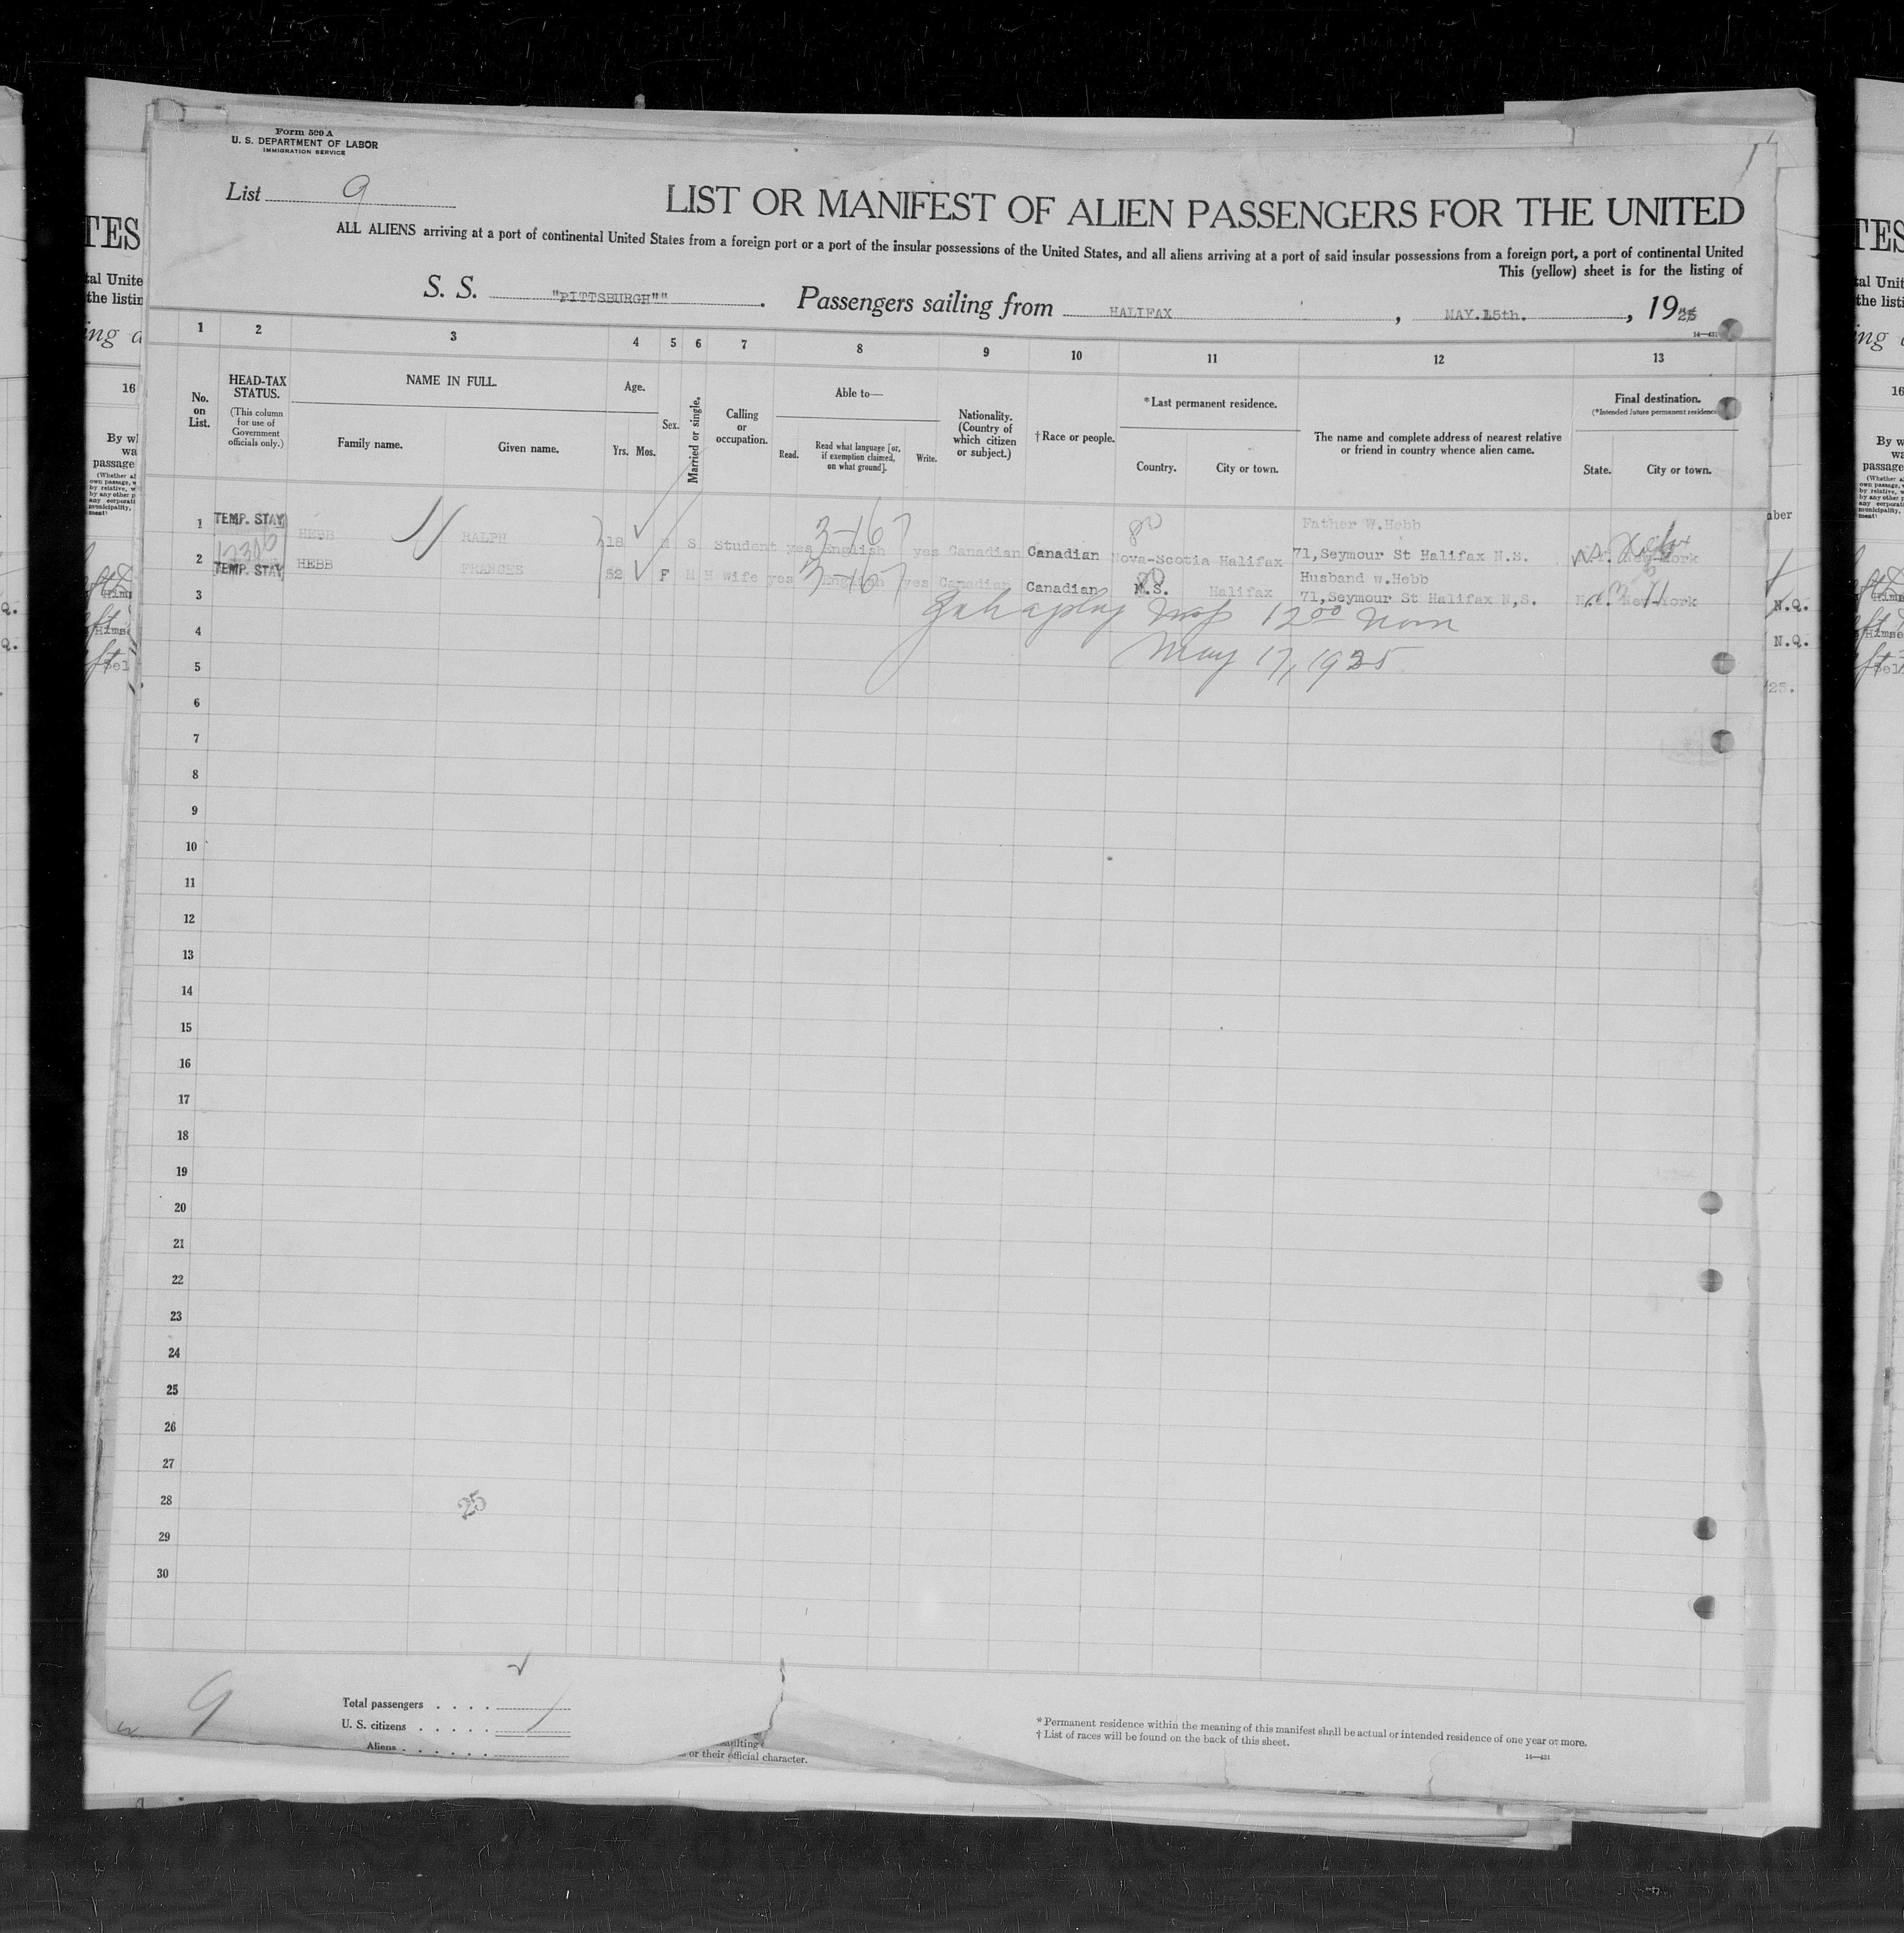 Form 500 A
U. S. DEPARTMENT OF LABOR
IMMIGRATION SERVICE
List 9
LIST OR MANIFEST OF ALIEN PASSENGERS FOR THE UNITED
ALL ALIENS arriving at a port of continental United States from a foreign port or a port of the insular possessions of the United States, and all aliens arriving at a port of said insular possessions from a foreign port, a port of continental United
This (yellow) sheet is for the listing of
S. S. "PITTSBURGH"" . Passengers sailing from HALIFAX , MAY.15th. , 1925
1 2 3 4 5 6 7 8 9 10 11 12 13
No. on List.
HEAD-TAX STATUS.
(This column for use of Government officials only.)
NAME IN FULL.
Family name. Given name.
Age.
Yrs. Mos.
Sex.
Married or single.
Calling or occupation.
Able to—
Read. Read what language [or, if exemption claimed, on what ground]. Write.
Nationality. (Country of which citizen or subject.)
†Race or people.
*Last permanent residence.
Country. City or town.
The name and complete address of nearest relative or friend in country whence alien came.
Final destination.
(*Intended future permanent residence
State. City or town.
1 TEMP. STAY HEBB RALPH 18 M S Student yes English yes Canadian Canadian Nova-Scotia Halifax Father W.Hebb
71,Seymour St Halifax N.S. New-York
2 TEMP. STAY HEBB FRANCES 52 F M H Wife yes English yes Canadian Canadian N.S. Halifax Husband w.Hebb
71,Seymour St Halifax N,S. New-York
3-16
3-16
12 00 noon
May 17, 1925
3
4
5
6
7
8
9
10
11
12
13
14
15
16
17
18
19
20
21
22
23
24
25
26
27
28
29
30
25
9
Total passengers
U. S. citizens
Aliens
or their official character.
* Permanent residence within the meaning of this manifest shall be actual or intended residence of one year or more.
† List of races will be found on the back of this sheet.
N.Q.
N.Q.